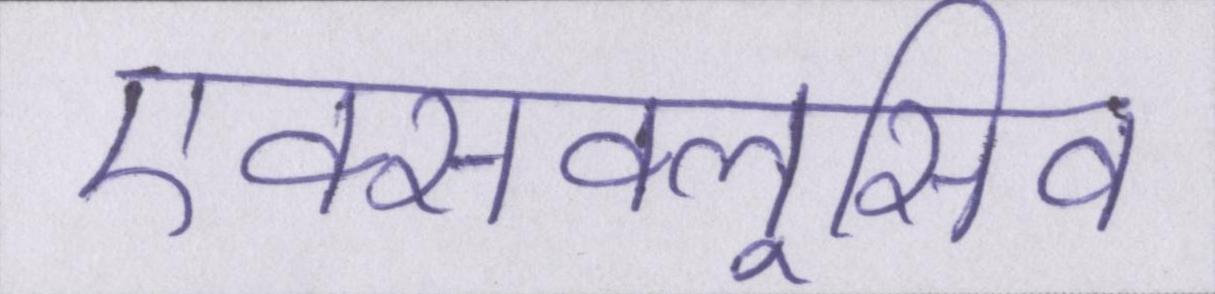 एक्सक्लूसिव